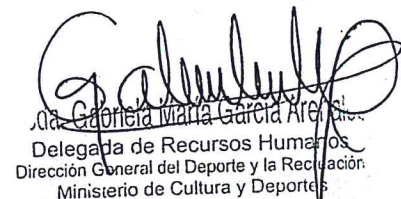 Gabriela María García
Delegada de Recursos Humanos
Dirección General del Deporte y la Recreación
Ministerio de Cultura y Deportes